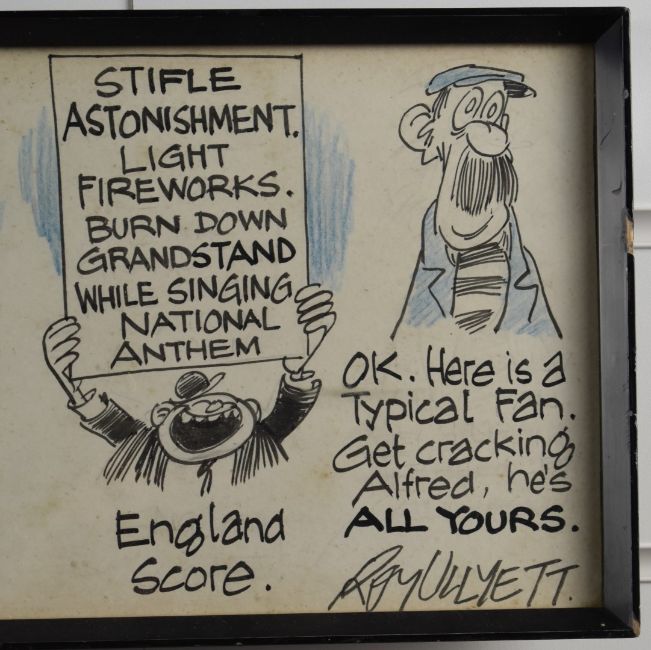 STIFLE
ASTONISHMENT.
LIGHT
FIREWORKS.
BURN DOWN
GRANDSTAND
WHILE SINGING
NATIONAL
ANTHEM
England
Score.
OK. Here is a
Typical Fan.
Get cracking
Alfred, he's
ALL YOURS.
ROY ULLYETT.